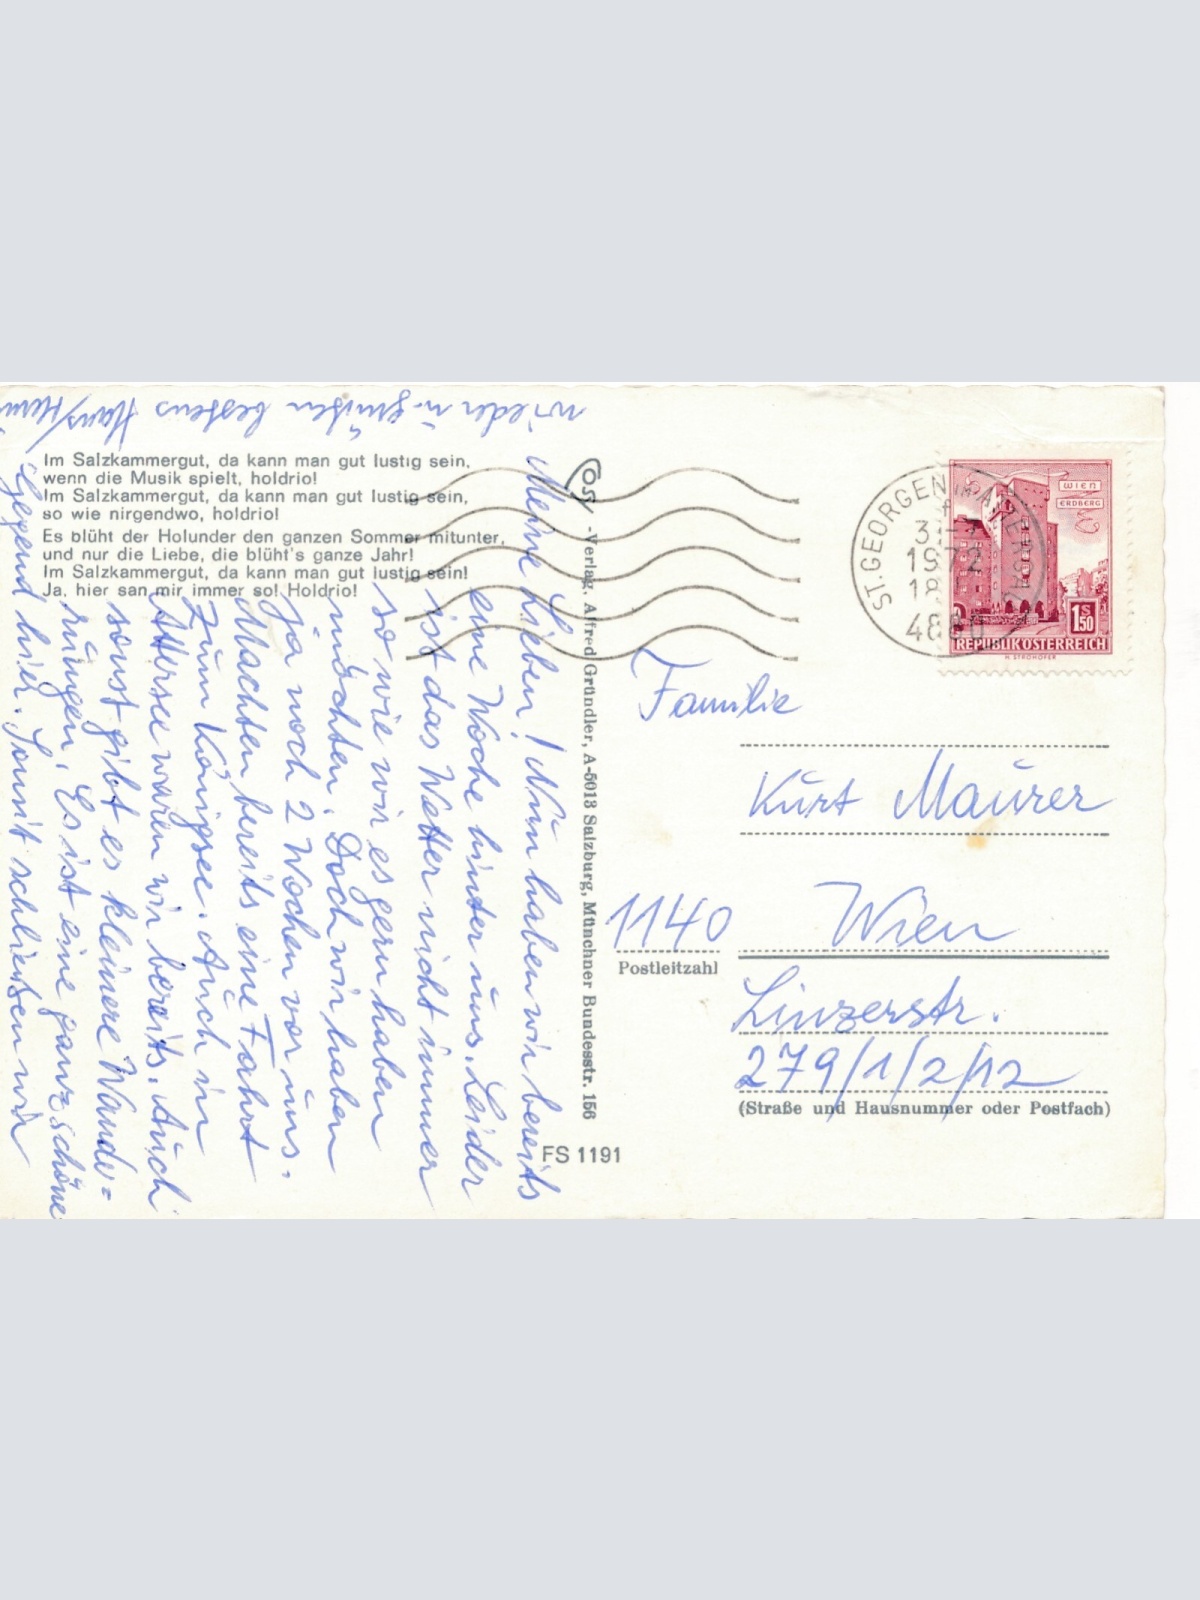 Im Salzkammergut, da kann man gut lustig sein,
wenn die Musik spielt, holdrio!
Im Salzkammergut, da kann man gut lustig sein,
so wie nirgendwo, holdrio!
Es blüht der Holunder den ganzen Sommer mitunter,
und nur die Liebe, die blüht's ganze Jahr!
Im Salzkammergut, da kann man gut lustig sein!
Ja, hier san mir immer so! Holdrio!
Meine Lieben! Nun haben wir bereits
eine Woche hinter uns. Leider
ist das Wetter nicht immer
so wie wir es gern haben
möchten. Doch wir haben
ja noch 2 Wochen vor uns.
Machten bereits eine Fahrt
zum Königsee. Auch im
Attersee waren wir bereits. Auch
sonst gibt es kleinere Wander=
rungen. Es ist eine ganz schöne
Gegend hier. Somit schließen wir
wieder u. grüßen bestens Hans/
Cosy -Verlag, Alfred Gründler, A-5013 Salzburg, Münchner Bundesstr. 156
FS 1191
ST. GEORGEN IM ATTERGAU
1972
18
4880
WIEN
ERDBERG
1S50
REPUBLIK ÖSTERREICH
H. STROHOFER
Familie
Kurt Maurer
1140 Wien
Postleitzahl
Linzerstr.
279/1/2/12
(Straße und Hausnummer oder Postfach)